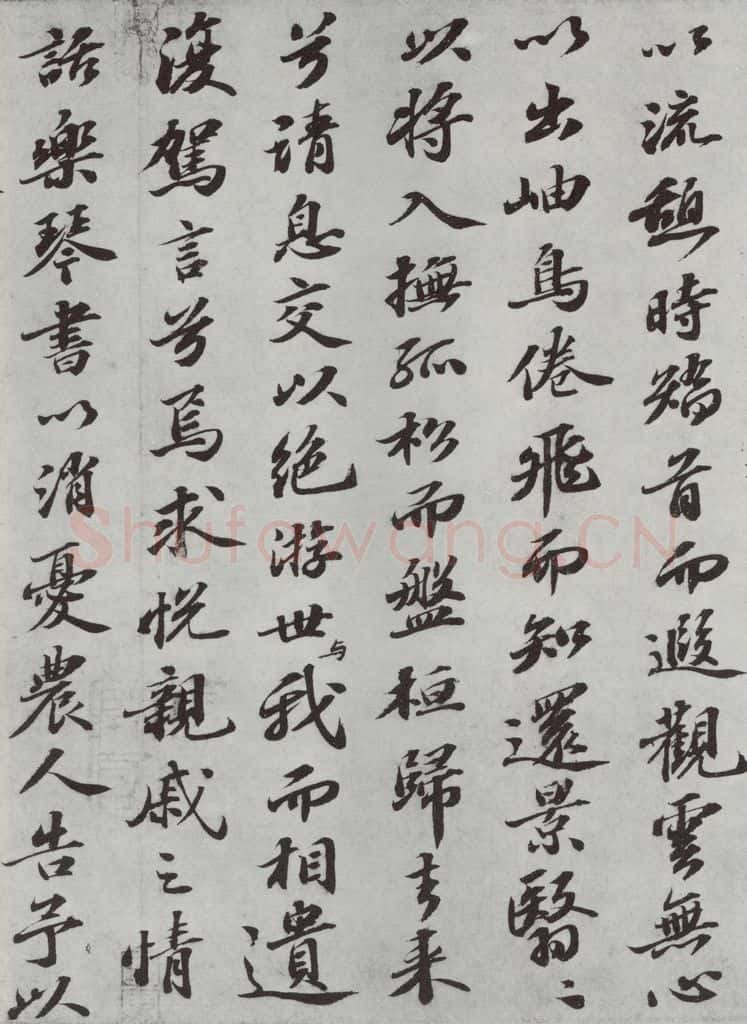 以流憩時矯首而遐觀雲無心
以出岫鳥倦飛而知還景翳〻
以將入撫孤松而盤桓歸去来
兮請息交以絶游世与我而相遺
復駕言兮焉求悦親戚之情
話樂琴書以消憂農人告予以
Shufawang.CN